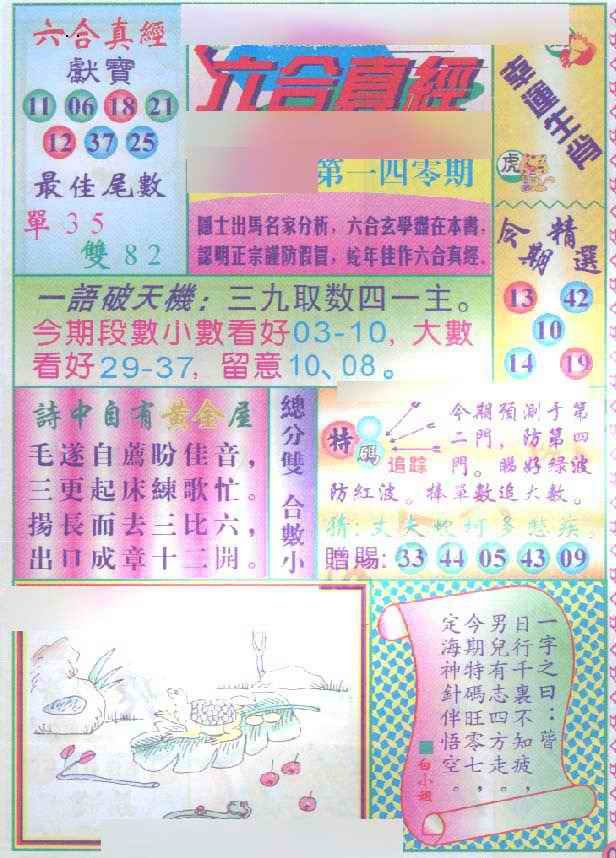 六合真經
獻寶
11 06 18 21
12 37 25
最佳尾數
單 3 5
雙 8 2
六合真經
第一四零期
隱士出馬名家分析，六合玄學盡在本書，
認明正宗謹防假冒，蛇年佳作六合真經。
幸運生肖
虎
今期精選
13 42
10
14 19
一語破天機：三九取数四一主。
今期段數小數看好03-10，大數
看好29-37，留意10、08。
詩中自有黃金屋
毛遂自薦盼佳音，
三更起床練歌忙。
揚長而去三比六，
出口成章十二開。
總分雙 合數小
特碼
追踪
今期預測于第
二門，防第四
門。睇好绿波
防紅波。捧單數追大數。
猜：丈夫
多愁疾。
贈賜：33 44 05 43 09
一字之曰：皆
日行千裏不知疲，
男兒有志四方走。
今期特碼旺零七，
定海神針伴悟空。
白小姐